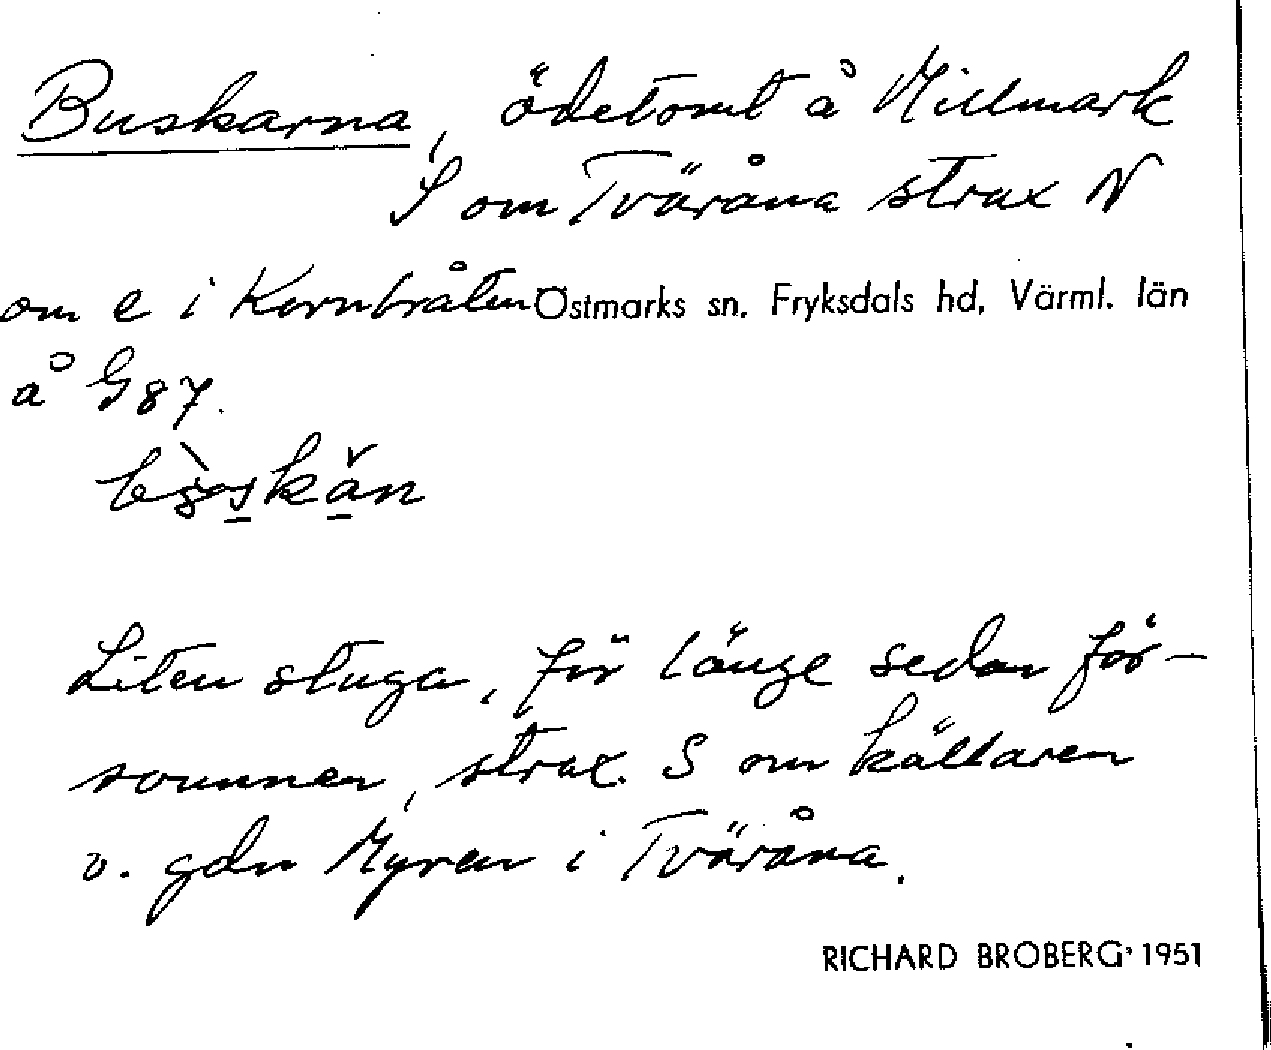 Buskarna, ödetomt å Millmark
S om Tväråna strax N
om e i Kornbråten Östmarks sn. Fryksdals hd, Värml. län
å G 87.
Liten stuga, för länge sedan för-
svunnen, strax S om källaren
v. gdn Myren i Tväråna.
RICHARD BROBERG 1951